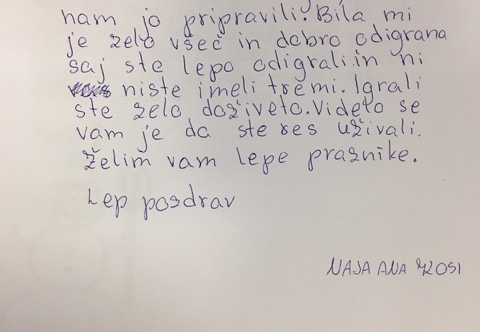 nam jo pripravili. Bila mi
je zelo všeč in dobro odigrana
saj ste lepo odigrali.in ni
niste imeli tremi. Igrali
ste zelo doživeto. Videlo se
vam je da ste res uživali.
Želim vam lepe praznike.
Lep pozdrav
NAJA ANA KOSI